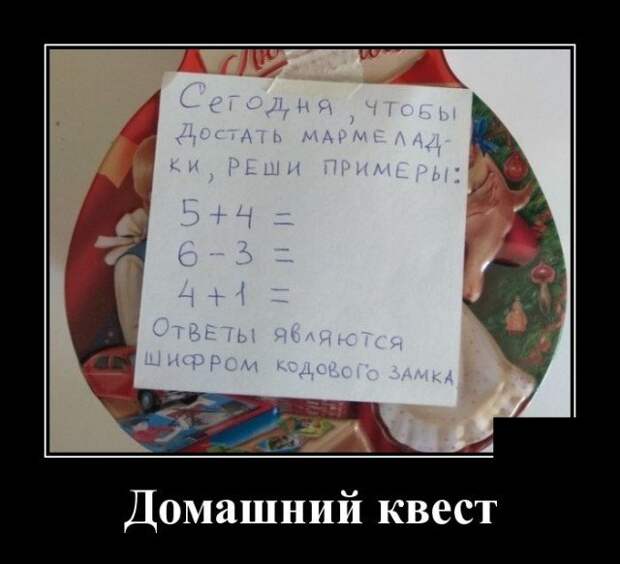 Сегодня, чтобы
достать мармелад-
ки, реши примеры:
5+4 =
6-3 =
4+1 =
Ответы являются
шифром кодового замка
Домашний квест